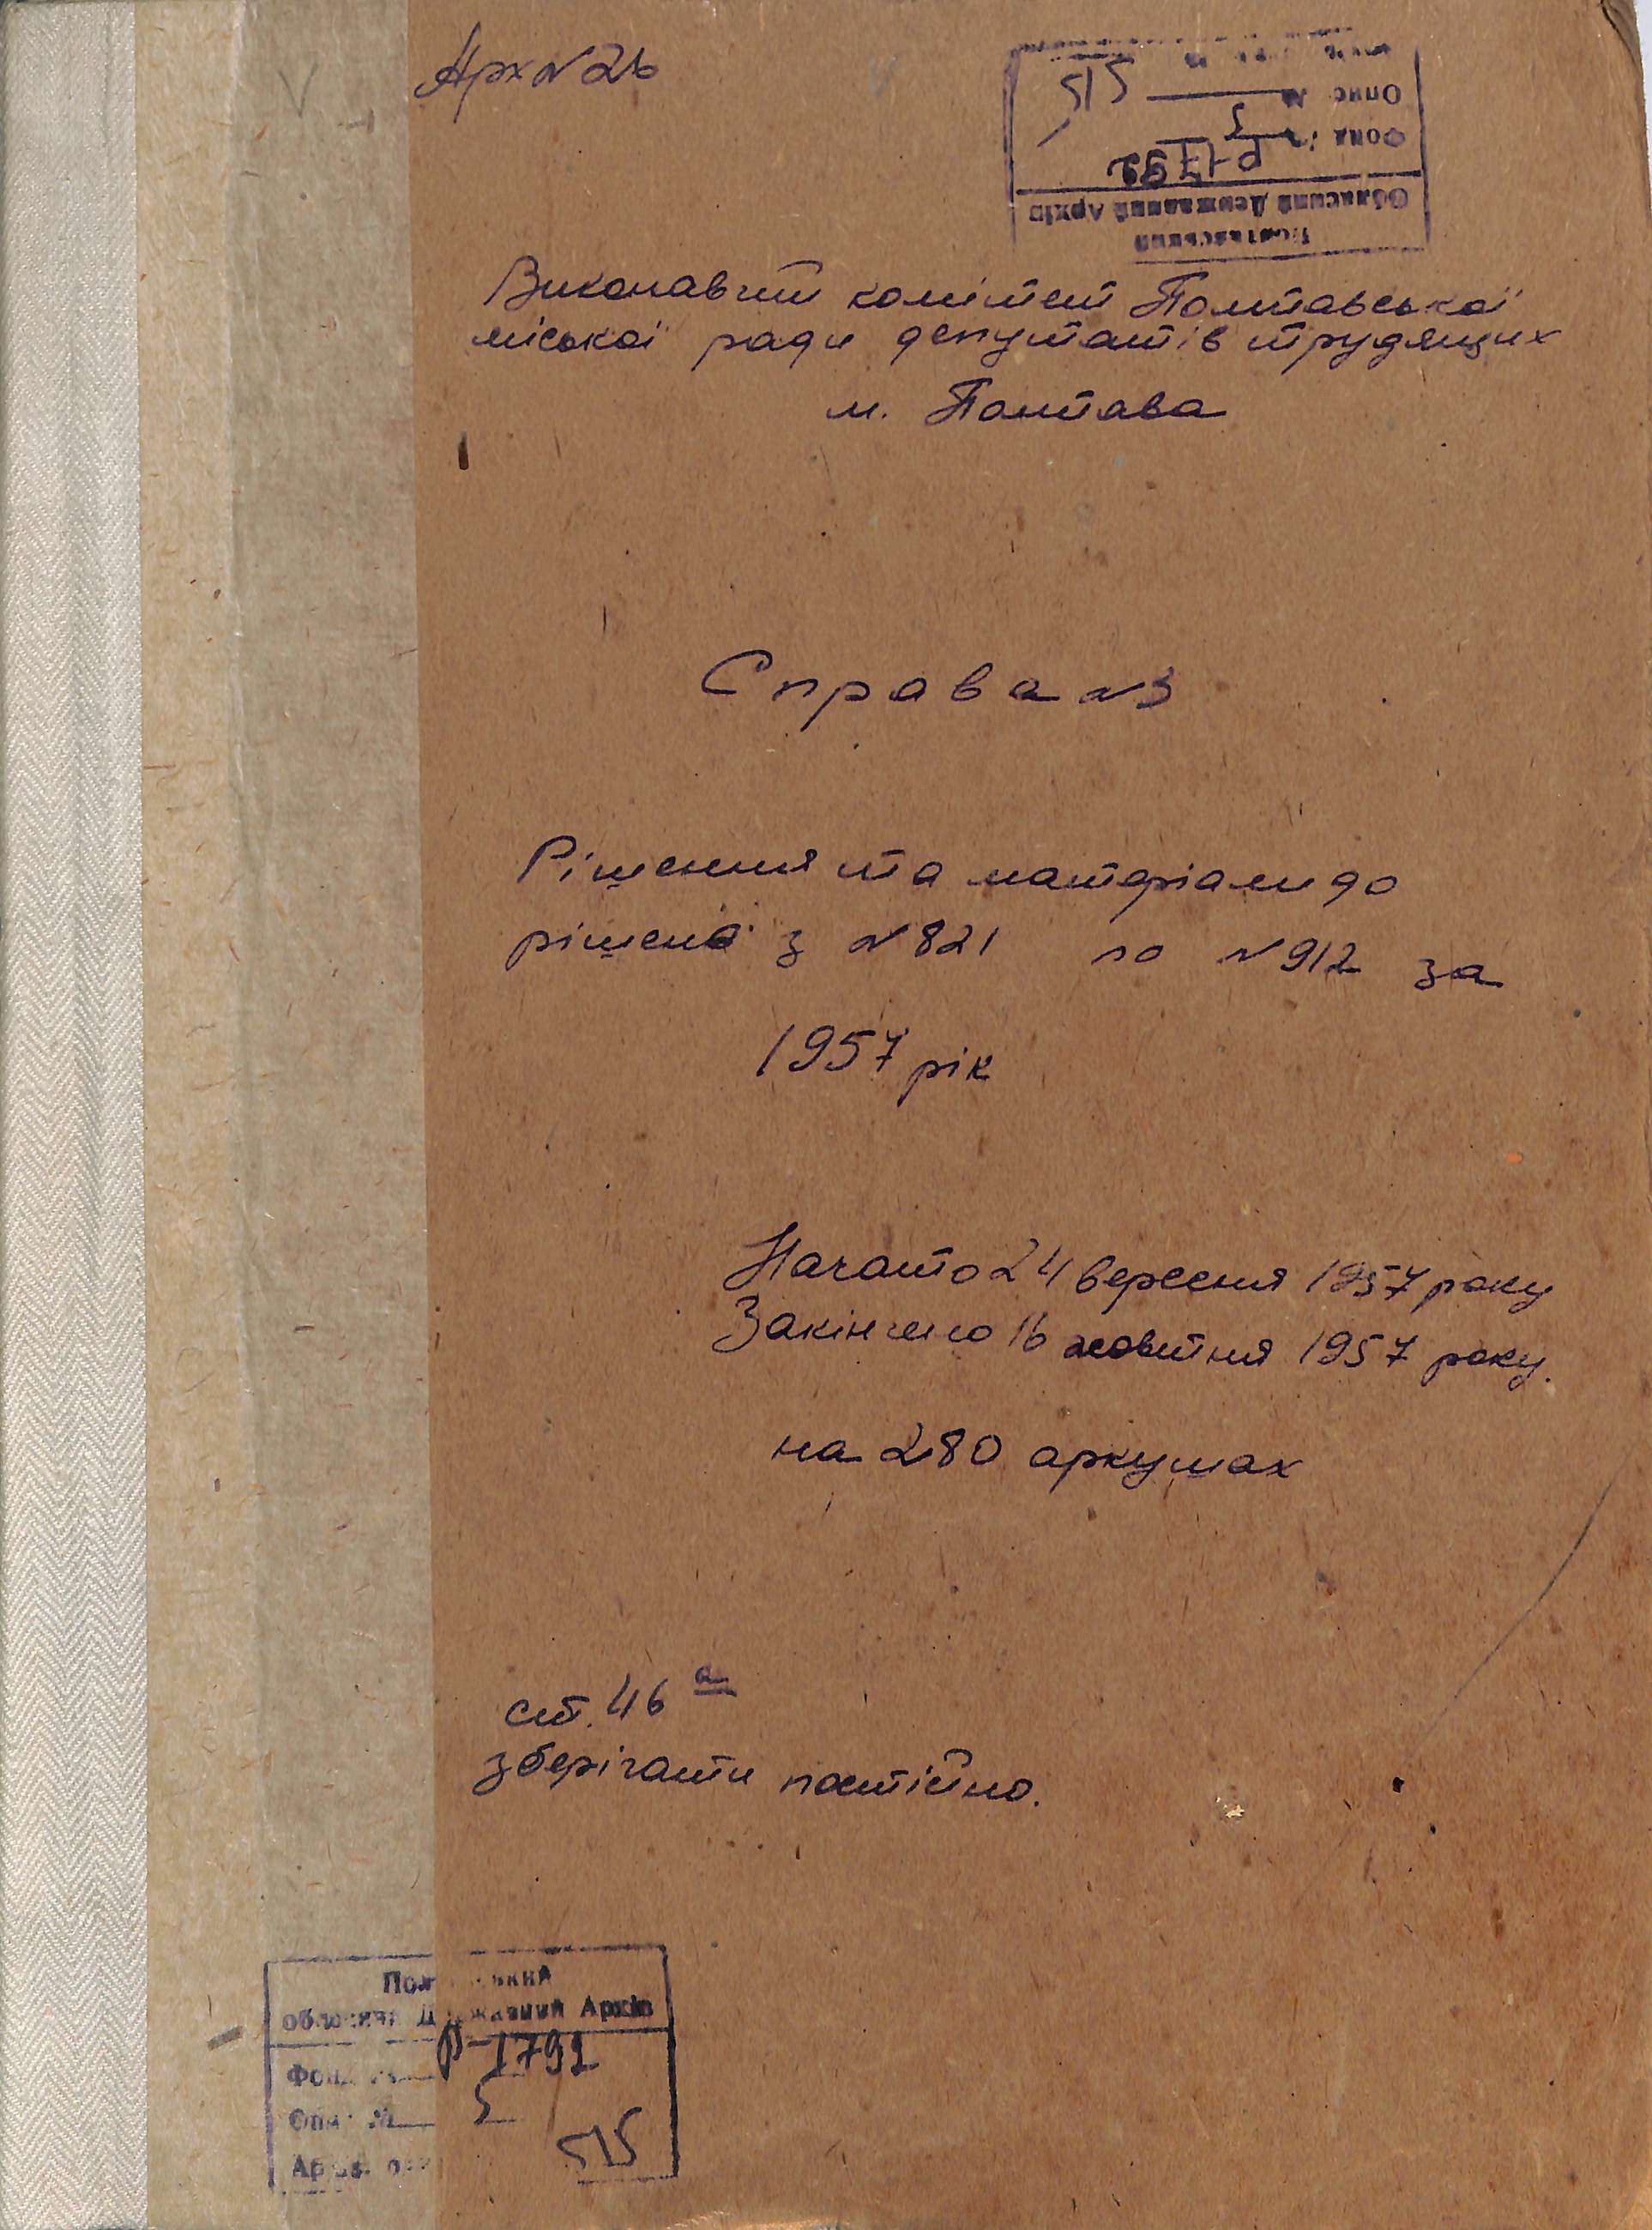 Арх N 26
Полтавський
Обласний Державний Архів
Фонд № Р-1792
Опис № 5
515
Виконавчий комітет Полтавської
міської ради депутатів трудящих
м. Полтава
Справа N3
Рішення та матеріали до
рішень з N 821 по N 912 за
1957 рік
Начато 24 вересня 1957 року
Закінчено 16 жовтня 1957 року.
на 280 аркушах
ст. 46 а
зберігати постійно.
Полтавський
обласний Державний Архів
Фонд № Р-1792
Опис № 5
515